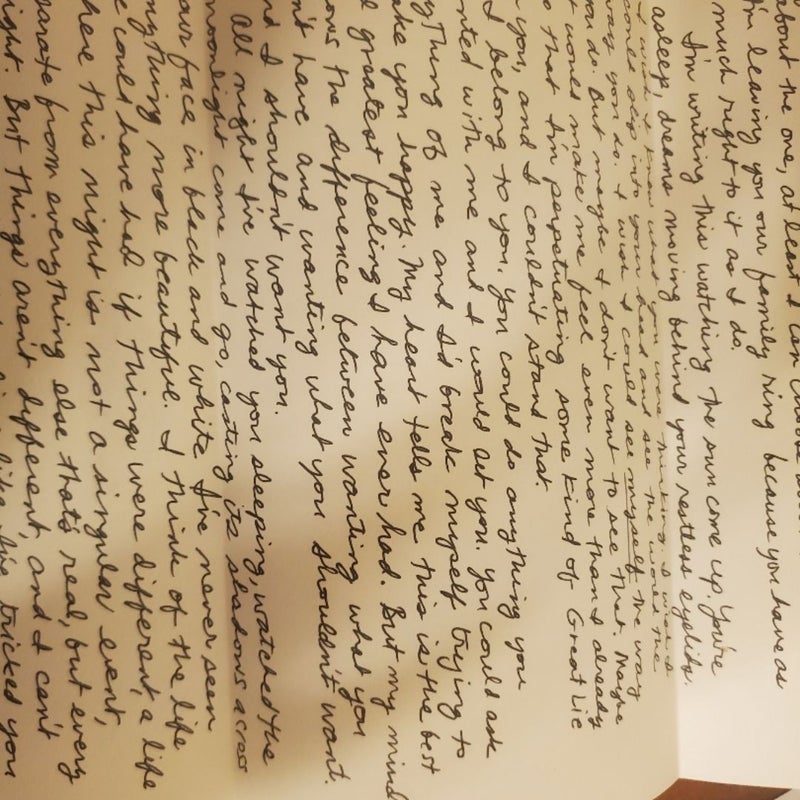 about the one, at least I can choose
I'm leaving you our family ring because you have as
much right to it as I do.
I'm writing this watching the sun come up. You're
asleep, dreams moving behind your restless eyelids.
I wish I knew what you were thinking. I wish I
could slip into your head and see the world the
way you do. I wish I could see myself the way
you do. But maybe I don't want to see that. Maybe
it would make me feel even more than I already
do that I'm perpetuating some kind of Great Lie
on you, and I couldn't stand that.
I belong to you. You could do anything you
wanted with me and I would let you. You could ask
anything of me and I'd break myself trying to
make you happy. My heart tells me this is the best
and greatest feeling I have ever had. But my mind
knows the difference between wanting what you
can't have and wanting what you shouldn't want.
And I shouldn't want you.
All night I've watched you sleeping, watched the
moonlight come and go, casting its shadows across
your face in black and white. I've never seen
anything more beautiful. I think of the life
we could have had if things were different, a life
where this night is not a singular event,
separate from everything else that's real, but every
night. But things aren't different, and I can't
like I've tricked you